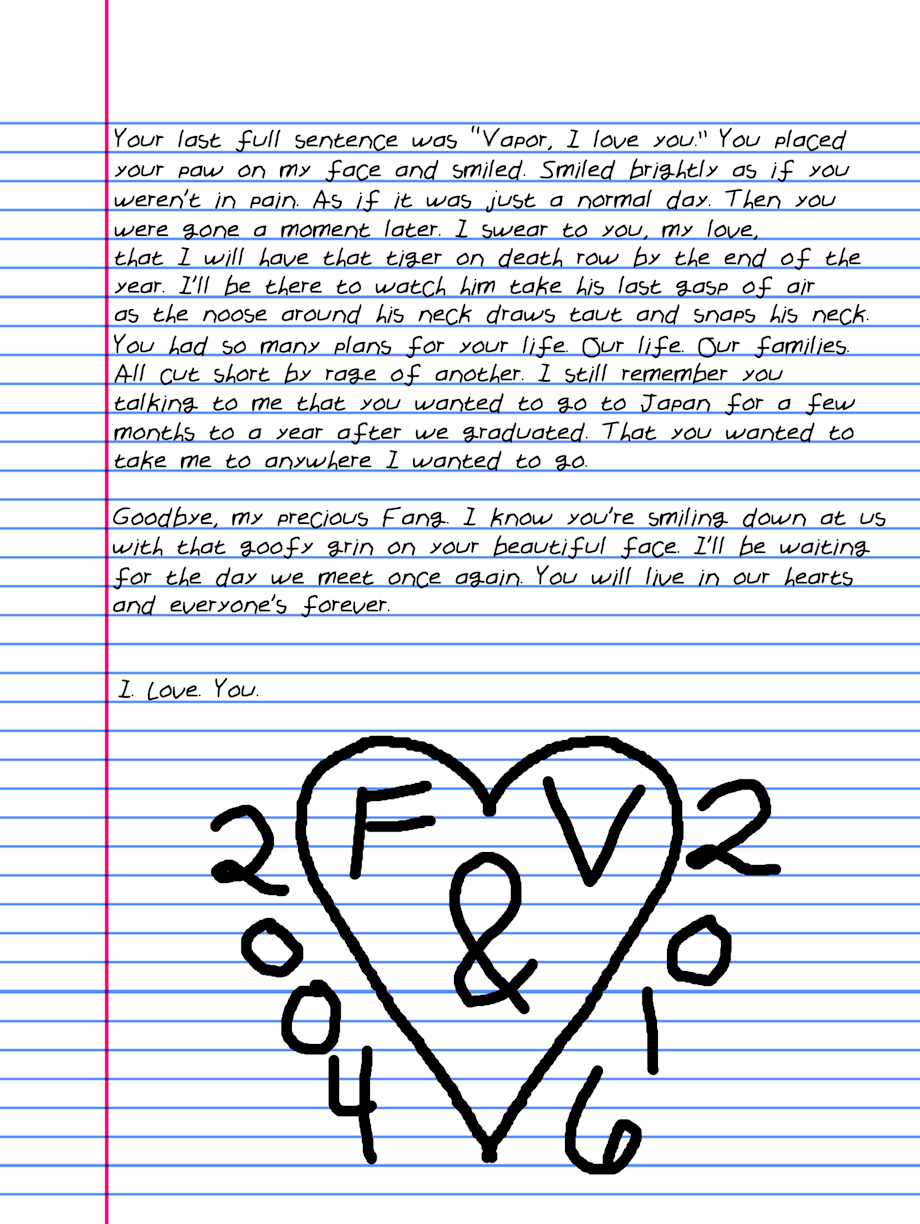 Your last full sentence was "Vapor, I love you." You placed
your paw on my face and smiled. Smiled brightly as if you
weren't in pain. As if it was just a normal day. Then you
were gone a moment later. I swear to you, my love,
that I will have that tiger on death row by the end of the
year. I'll be there to watch him take his last gasp of air
as the noose around his neck draws taut and snaps his neck.
You had so many plans for your life. Our life. Our families.
All cut short by rage of another. I still remember you
talking to me that you wanted to go to Japan for a few
months to a year after we graduated. That you wanted to
take me to anywhere I wanted to go.
Goodbye, my precious Fang. I know you're smiling down at us
with that goofy grin on your beautiful face. I'll be waiting
for the day we meet once again. You will live in our hearts
and everyone's forever.
I. Love. You.
F & V
2004
2016